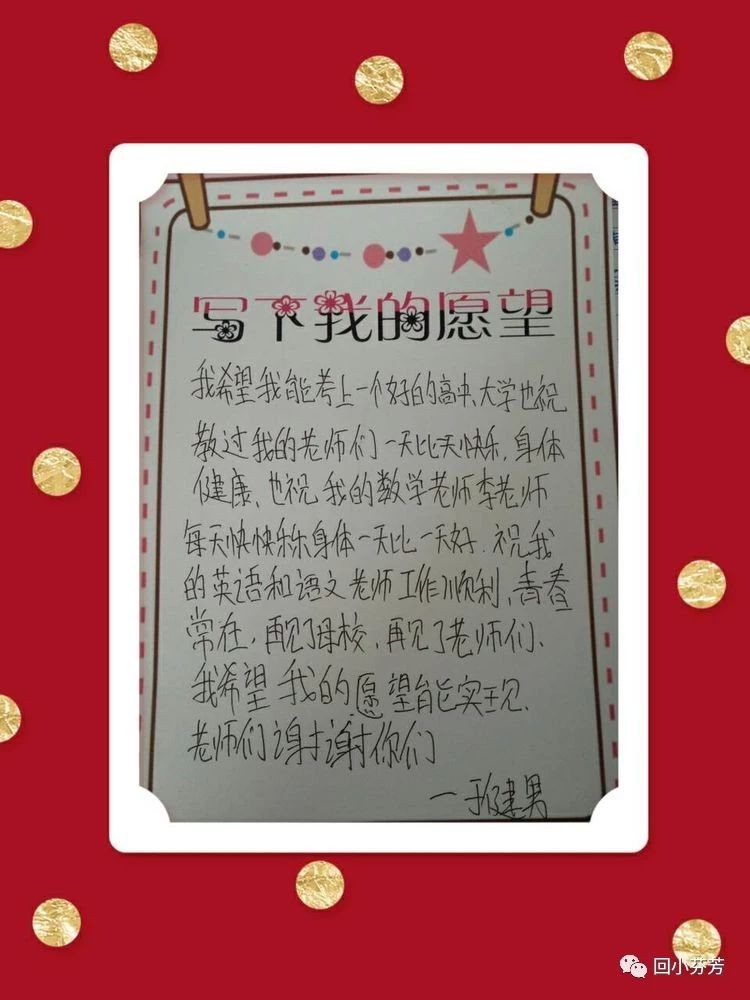 写下我的愿望
我希望我能考上一个好的高中、大学也祝
教过我的老师们一天比天快乐,身体
健康、也祝我的数学老师李老师
每天快快乐乐身体一天比一天好.祝我
的英语和语文老师工作顺利、青春
常在,再见了母校、再见了老师们、
我希望我的愿望能实现、
老师们谢谢你们
一于健男
回小芬芳